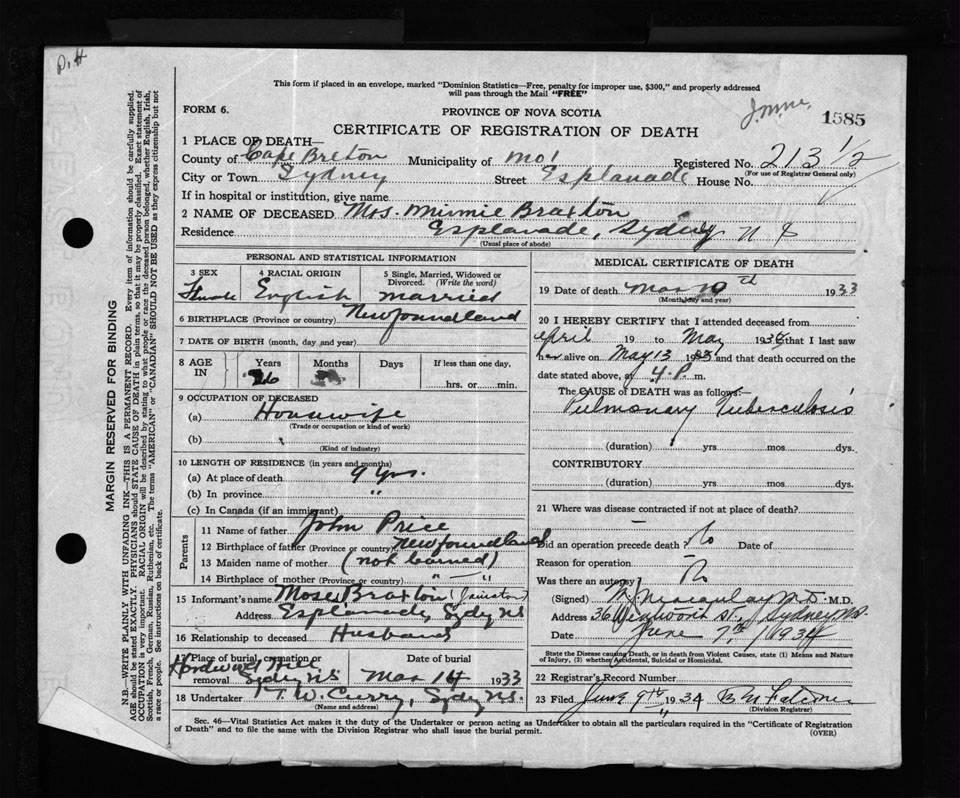 P.H
This form if placed in an envelope, marked "Dominion Statistics—Free, penalty for improper use, $300," and properly addressed
will pass through the Mail "FREE"
FORM 6.
PROVINCE OF NOVA SCOTIA
1585
CERTIFICATE OF REGISTRATION OF DEATH
1 PLACE OF DEATH—
County of Cape Breton Municipality of Registered No. 213 1/2
(For use of Registrar General only)
City or Town Sydney Street Esplanade House No.
If in hospital or institution, give name
2 NAME OF DECEASED Mrs. Minnie Braxton
Residence Esplanade, Sydney N S
(Usual place of abode)
PERSONAL AND STATISTICAL INFORMATION
3 SEX 4 RACIAL ORIGIN 5 Single, Married, Widowed or Divorced. (Write the word)
Female English married
6 BIRTHPLACE (Province or country) Newfoundland
7 DATE OF BIRTH (month, day and year)
8 AGE IN Years Months Days If less than one day,
26 hrs. or min.
9 OCCUPATION OF DECEASED
(a) Housewife
(Trade or occupation or kind of work)
(b)
(Kind of industry)
10 LENGTH OF RESIDENCE (in years and months)
(a) At place of death 9 yrs.
(b) In province "
(c) In Canada (if an immigrant)
Parents
11 Name of father John Price
12 Birthplace of father (Province or country) Newfoundland
13 Maiden name of mother (not learned)
14 Birthplace of mother (Province or country) " — "
15 Informant's name Moses Braxton
Address Esplanade, Sydy NS
16 Relationship to deceased Husband
17 Place of burial, cremation or removal Hardwood Hill Sydy NS Date of burial Mar 14 1933
18 Undertaker T. W. Curry, Sydy NS.
(Name and address)
MEDICAL CERTIFICATE OF DEATH
19 Date of death Mar th 1933
(Month, day and year)
20 I HEREBY CERTIFY that I attended deceased from
April 19 to May 193 that I last saw
her alive on May 13 and that death occurred on the
date stated above, at 4. P. m.
The CAUSE OF DEATH was as follows:—
Pulmonary Tuberculosis
(duration) yrs mos. dys.
CONTRIBUTORY
(duration) yrs. mos. dys.
21 Where was disease contracted if not at place of death?
—
Did an operation precede death? No Date of
Reason for operation
Was there an autopsy? No
(Signed) Macaulay M.D. M.D.
Address 36 Wentworth St., Sydney NS.
Date June 7th 1934
State the Disease causing Death, or in death from Violent Causes, state (1) Means and Nature of Injury, (2) whether Accidental, Suicidal or Homicidal.
22 Registrar's Record Number
23 Filed June 9th 1934
(Division Registrar)
Sec. 46—Vital Statistics Act makes it the duty of the Undertaker or person acting as Undertaker to obtain all the particulars required in the "Certificate of Registration
of Death" and to file the same with the Division Registrar who shall issue the burial permit.
(OVER)
MARGIN RESERVED FOR BINDING
N.B.—WRITE PLAINLY WITH UNFADING INK—THIS IS A PERMANENT RECORD. Every item of information should be carefully supplied.
AGE should be stated EXACTLY. PHYSICIANS should STATE CAUSE OF DEATH in plain terms, so that it may be properly classified. Exact statement of
OCCUPATION is very important. RACIAL ORIGIN will be described by stating to what people or race the deceased person belonged, whether English, Irish,
Scottish, French, German, Russian, Ruthenian, etc. The terms "AMERICAN" or "CANADIAN" SHOULD NOT BE USED as they express citizenship but not
a race or people. See instructions on back of certificate.